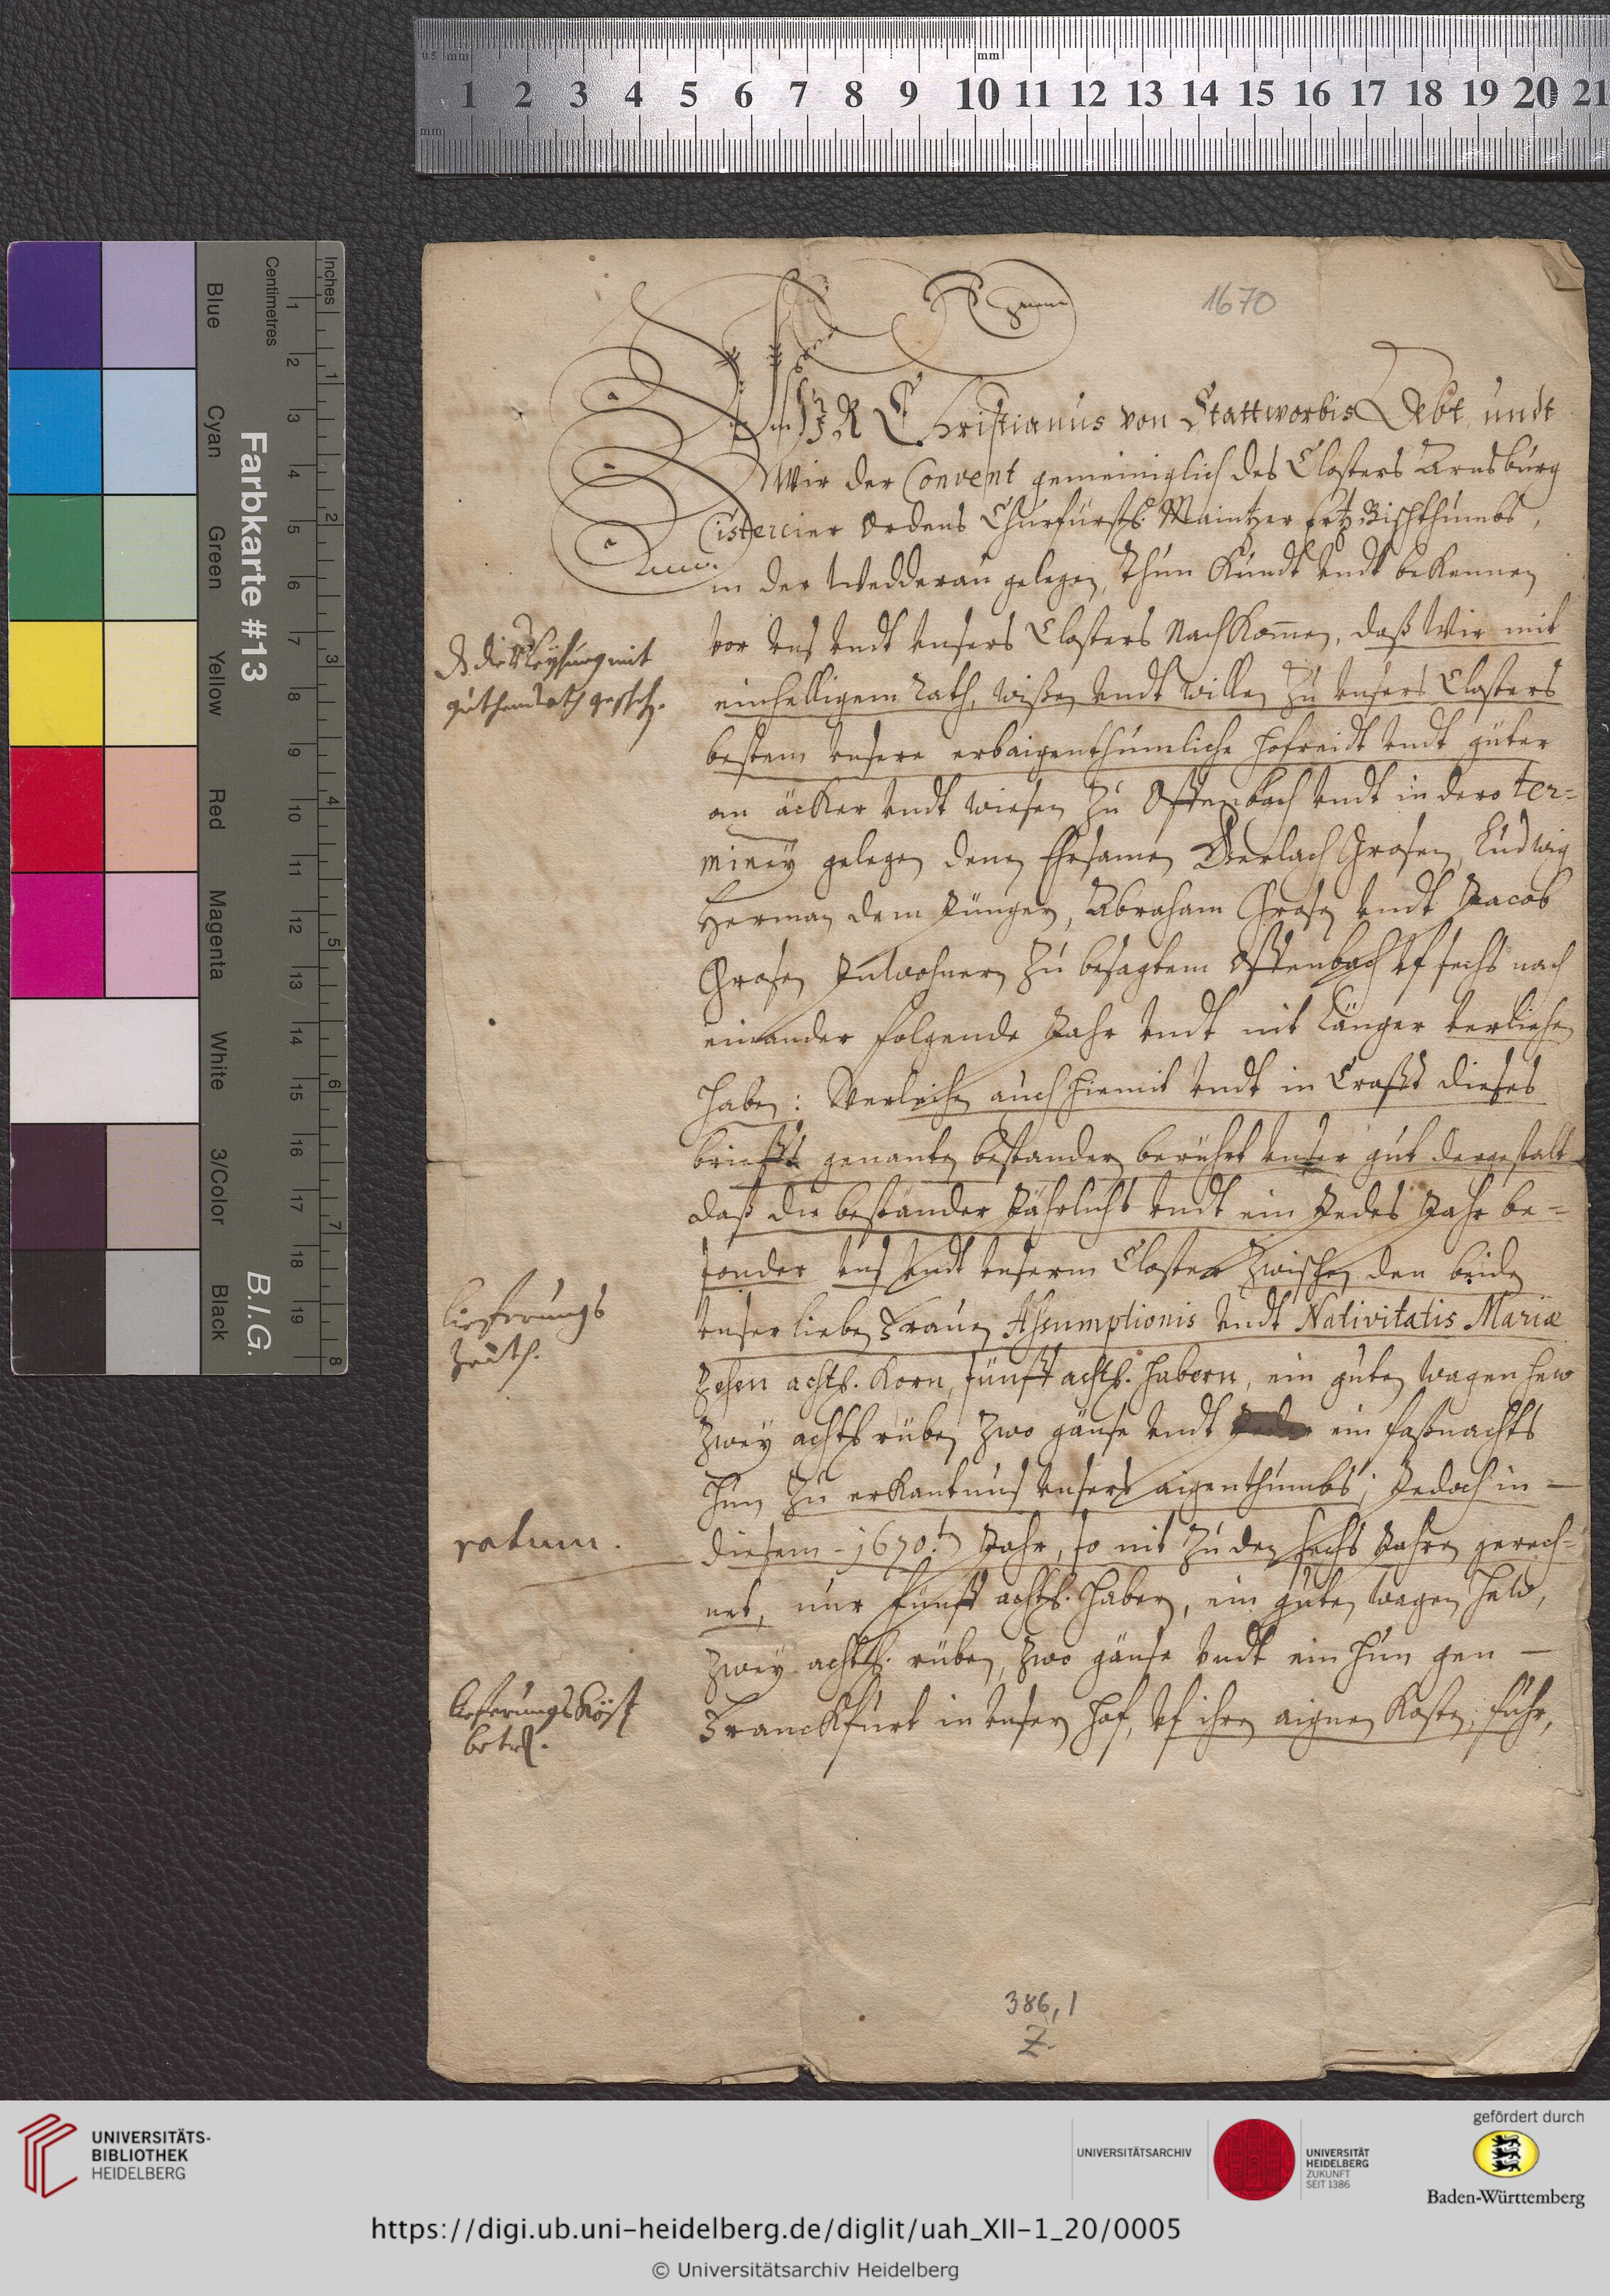 0.5 mm mm
1 2 3 4 5 6 7 8 9 10 11 12 13 14 15 16 17 18 19 20 21
mm
Inches
Centimetres
1 2 3 4 5 6 7 8 9 10 11 12 13 14 15 16 17 18 19
1 2 3 4 5 6 7 8
Farbkarte #13
B.I.G.
Blue
Cyan
Green
Yellow
Red
Magenta
White
3/Color
Black
1670
WIR Christianus von Stattworbis Aebt, undt
Wir der Convent gemeiniglich des Closters Arnsburg
Cistercier Ordens Churfürstl. Maintzer Ertz Bischthumbs,
in der Wedderau gelegen, Thun Kundt vndt beKennen
vor vns vndt vnsers Closters NachKom̄en, daß Wir mit
einhelligem rath, wißen vndt willen zu vnsers Closters
bestem vnsere erbaigenthumliche hofreidt vndt güter
an äcKer vndt wiesen zu Offenbach vndt in dero ter=
miney gelegen denen Ehrsamen Gerlach Grosen, Ludwig
Herman dem Jüngen, Abraham Grosen vndt Jacob
Grosen Inwohnern zu besagtem Offenbach vf sechs nach
einander folgende Jahr vndt nit länger verliehen
haben: Verleihen auch hiemit vndt in Crafft dieses
brieffs genanten bestandern berührt vnser gut dergestalt
daß die beständer Jährlichs vndt ein Jedes Jahr be=
sonder vns vndt vnserm Closter zwischen den beiden
vnser lieben Frauen Assumptionis vndt Nativitatis Mariæ
Zehen achtl. Korn, fünff achtl. habern, ein guten wagen hew
zwey achtl. rüben zwo gänse vndt ein faßnachts
hun zu erKantnus vnsers aigenthumbs; Jedoch in —
diesem - 1670.t Jahr, so nit zu den sechs Jahren gerech=
net, nur fünff achtl. habern, ein guten wagen hew,
zwey achtl. rüben, zwo gänse vndt ein hun gen —
FrancKfurt in vnsern hof, vf ihren aignen Kosten, fuhr,
die mit
guthem rath
lieferungs
Zeith.
ratum.
lieferungs Köst
betrl.
386,1
Z.
UNIVERSITÄTS-
BIBLIOTHEK
HEIDELBERG
UNIVERSITÄTSARCHIV
UNIVERSITÄT
HEIDELBERG
ZUKUNFT
SEIT 1386
gefördert durch
Baden-Württemberg
https://digi.ub.uni-heidelberg.de/diglit/uah_XII-1_20/0005
© Universitätsarchiv Heidelberg